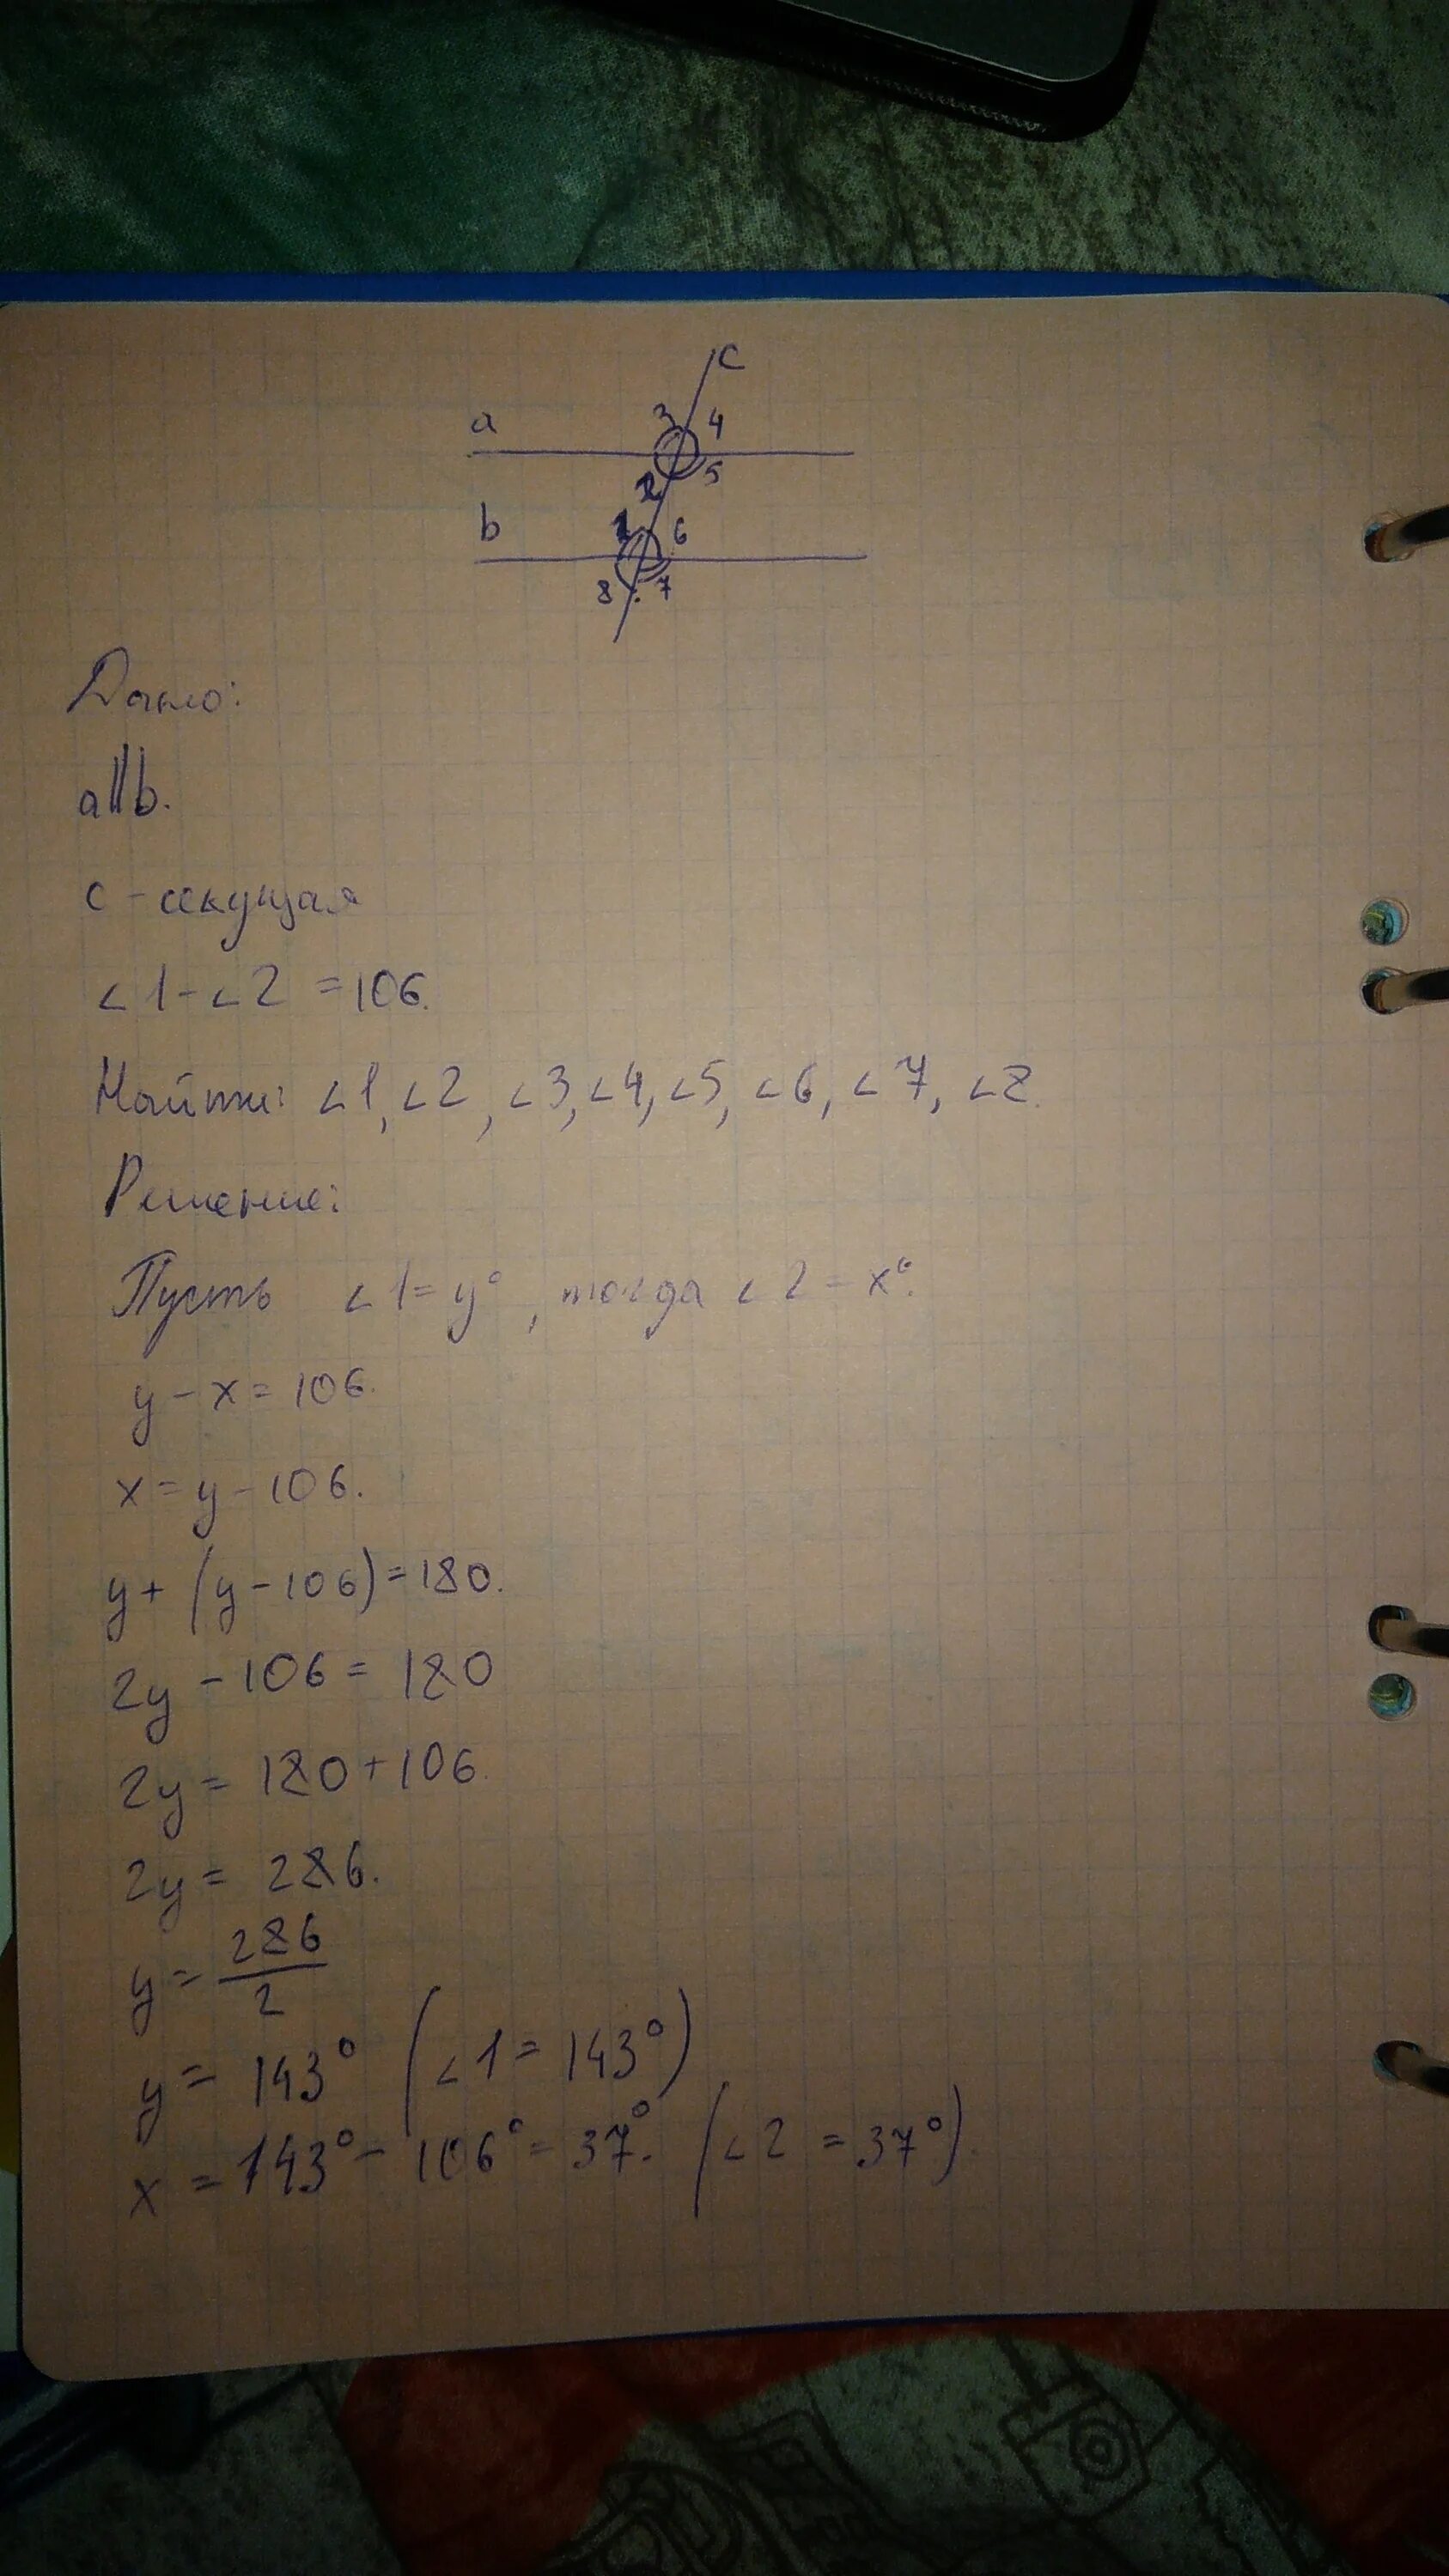 c
a 3 4
2 5
b 1 6
8 7
Дано:
a||b.
c - секущая
∠1-∠2 = 106.
Найти: ∠1, ∠2, ∠3, ∠4, ∠5, ∠6, ∠7, ∠8.
Решение:
Пусть ∠1 = y°, тогда ∠2 = x°.
y - x = 106.
x = y - 106.
y + (y - 106) = 180.
2y - 106 = 180
2y = 180 + 106.
2y = 286.
y = 286/2
y = 143° (∠1 = 143°)
x = 143° - 106° = 37°. (∠2 = 37°).